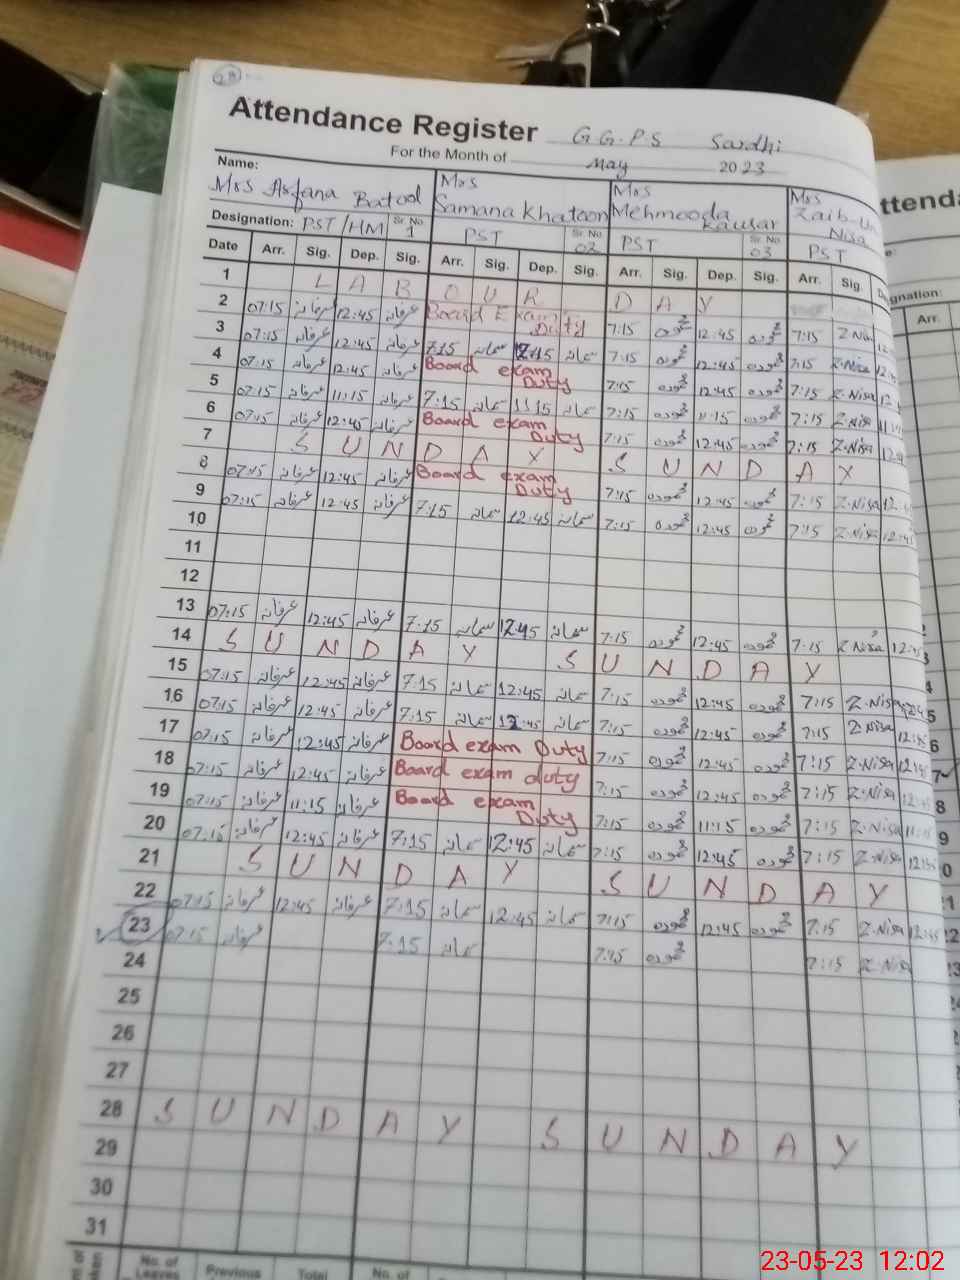 28
Attendance Register G.G.P.S Sardhi
For the Month of May 2023
Name: Mrs Mrs Mrs
Mrs Arfana Batool Samana Khatoon Mehmooda Kausar Zaib-Un Nisa
Designation: PST/HM Sr. No 1 PST Sr. No 02 PST Sr. No 03 PST
Date Arr. Sig. Dep. Sig. Arr. Sig. Dep. Sig. Arr. Sig. Dep. Sig. Arr. Sig.
1 L A B O U R D A Y
2 07:15 عرفانہ 12:45 عرفانہ Board Exam Duty 7:15 12:45 7:15 Z-Nisa
3 07:15 عرفانہ 12:45 عرفانہ 7:15 سمانہ 12:45 سمانہ 7:15 12:45 7:15 Z-Nisa
4 07:15 عرفانہ 12:45 عرفانہ Board exam Duty 7:15 12:45 7:15 Z-Nisa
5 07:15 عرفانہ 11:15 عرفانہ 7:15 سمانہ 11:15 سمانہ 7:15 11:15 7:15 Z-Nisa
6 07:15 عرفانہ 12:45 عرفانہ Board exam Duty 7:15 12:45 7:15 Z-Nisa
7 S U N D A Y S U N D A Y
8 07:15 عرفانہ 12:45 عرفانہ Board exam Duty 7:15 12:45 7:15 Z-Nisa
9 07:15 عرفانہ 12:45 عرفانہ 7:15 سمانہ 12:45 سمانہ 7:15 12:45 7:15 Z-Nisa 12:45
10
11
12
13 07:15 عرفانہ 12:45 عرفانہ 7:15 سمانہ 12:45 سمانہ 7:15 12:45 7:15 Z Nisa
14 S U N D A Y S U N D A Y
15 07:15 عرفانہ 12:45 عرفانہ 7:15 سمانہ 12:45 سمانہ 7:15 12:45 7:15 Z-Nisa
16 07:15 عرفانہ 12:45 عرفانہ 7:15 سمانہ 12:45 سمانہ 7:15 12:45 7:15 Z Nisa 12:45
17 07:15 عرفانہ 12:45 عرفانہ Board exam Duty 7:15 12:45 7:15 Z-Nisa 12:45
18 07:15 عرفانہ 12:45 عرفانہ Board exam duty 7:15 12:45 7:15 Z-Nisa 12:45
19 07:15 عرفانہ 11:15 عرفانہ Board exam Duty 7:15 11:15 7:15 Z-Nisa 11:15
20 07:15 عرفانہ 12:45 عرفانہ 7:15 سمانہ 12:45 سمانہ 7:15 12:45 7:15 Z-Nisa 12:45
21 S U N D A Y S U N D A Y
22 07:15 عرفانہ 12:45 عرفانہ 7:15 سمانہ 12:45 سمانہ 7:15 12:45 7:15 Z-Nisa 12:45
23 07:15 عرفانہ 7:15 سمانہ 7:15 7:15 Z-Nisa
24
25
26
27
28 S U N D A Y S U N D A Y
29
30
31
No. of Leaves Previous Total No. of
Arr.
23-05-23 12:02